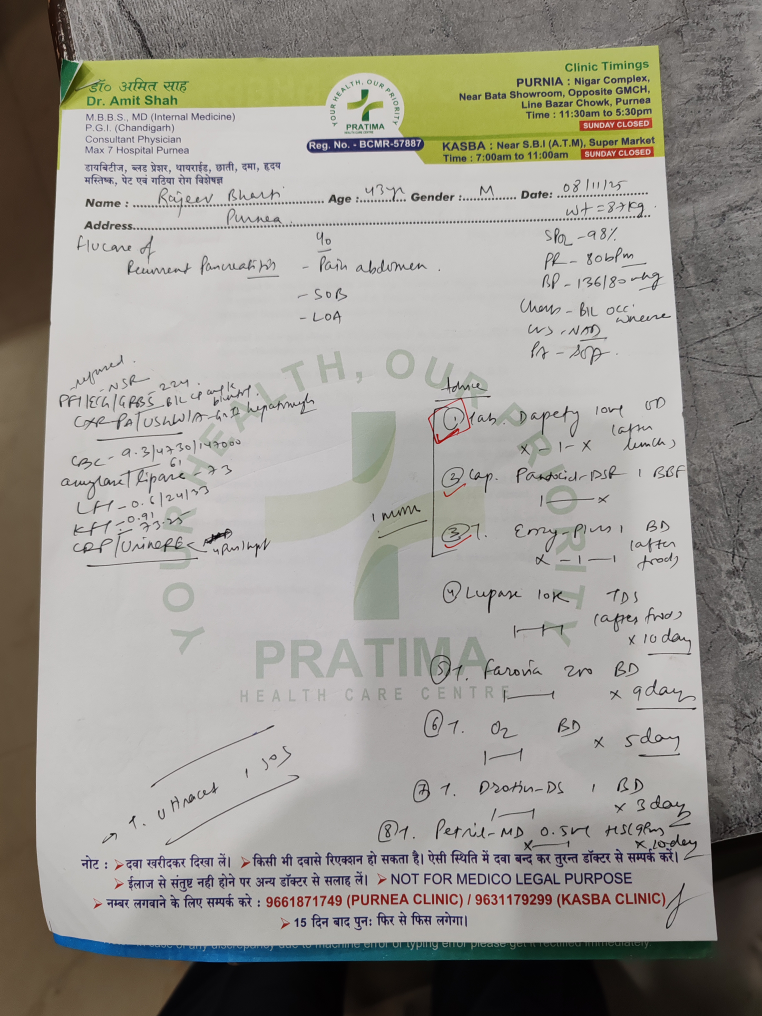 डॉ० अमित साह
Dr. Amit Shah
M.B.B.S., MD (Internal Medicine)
P.G.I. (Chandigarh)
Consultant Physician
Max 7 Hospital Purnea
डायबिटीज, ब्लड प्रेशर, थायराईड, छाती, दमा, हृदय
मस्तिष्क, पेट एवं गठिया रोग विशेषज्ञ
YOUR HEALTH, OUR PRIORITY
PRATIMA
HEALTH CARE CENTRE
Reg. No. - BCMR-57887
Clinic Timings
PURNIA : Nigar Complex,
Near Bata Showroom, Opposite GMCH,
Line Bazar Chowk, Purnea
Time : 11:30am to 5:30pm
SUNDAY CLOSED
KASBA : Near S.B.I (A.T.M), Super Market
Time : 7:00am to 11:00am SUNDAY CLOSED
Name : Rajeev Bharti Age : 43yr Gender : M Date: 08/11/25
Address Purnea wt = 87kg
Recurrent Pancreatitis
- Pain abdomen.
- SOB
- LOA
SPO2 - 98%
PR - 80bpm
BP - 136/80 mmhg
refused
- NSR
CBC - 9.3/4730/147000
amylase/lipase - 73
61
LFT - 0.6/24/33
KFT - 0.91
73.25
Advice
1 Tab. 10mg OD
(after lunch)
x - 1 - x
2 Cap. Pantocid-DSR 1 BBF
1 — x
3 T. Enzy-Plus 1 BD
(after food)
x - 1 - 1
4 Lupase 10K TDS
(after food)
x 10 day
5 T. Farovia 200 BD
x 9 day
6 T. O2 BD
x 5 day
7 T. Drotin-DS 1 BD
x 3 day
8 T. Petril-MD 0.5 HS (9pm)
x 10 day
T. Ultracet 1 SOS
YOUR HEALTH, OUR PRIORITY
PRATIMA
HEALTH CARE CENTRE
नोट : दवा खरीदकर दिखा लें। किसी भी दवासे रिएक्शन हो सकता है। ऐसी स्थिति में दवा बन्द कर तुरन्त डॉक्टर से सम्पर्क करें।
ईलाज से संतुष्ट नही होने पर अन्य डॉक्टर से सलाह लें। NOT FOR MEDICO LEGAL PURPOSE
नम्बर लगवाने के लिए सम्पर्क करे : 9661871749 (PURNEA CLINIC) / 9631179299 (KASBA CLINIC)
15 दिन बाद पुनः फिर से फिस लगेगा।
of any discrepancy due to machine error or typing error please get it rectified immediately